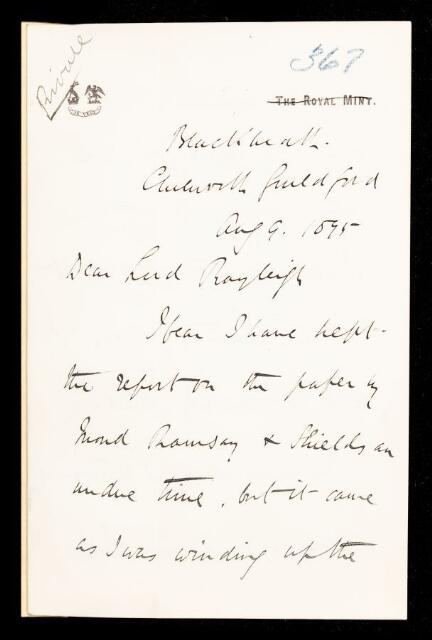 Private
367
THE ROYAL MINT.
Blackheath.
Chilworth Guildford
Aug 9. 1895
Dear Lord Rayleigh
I fear I have kept
the report on the paper by
Mond Ramsay & Shields an
undue time, but it came
as I was winding up the